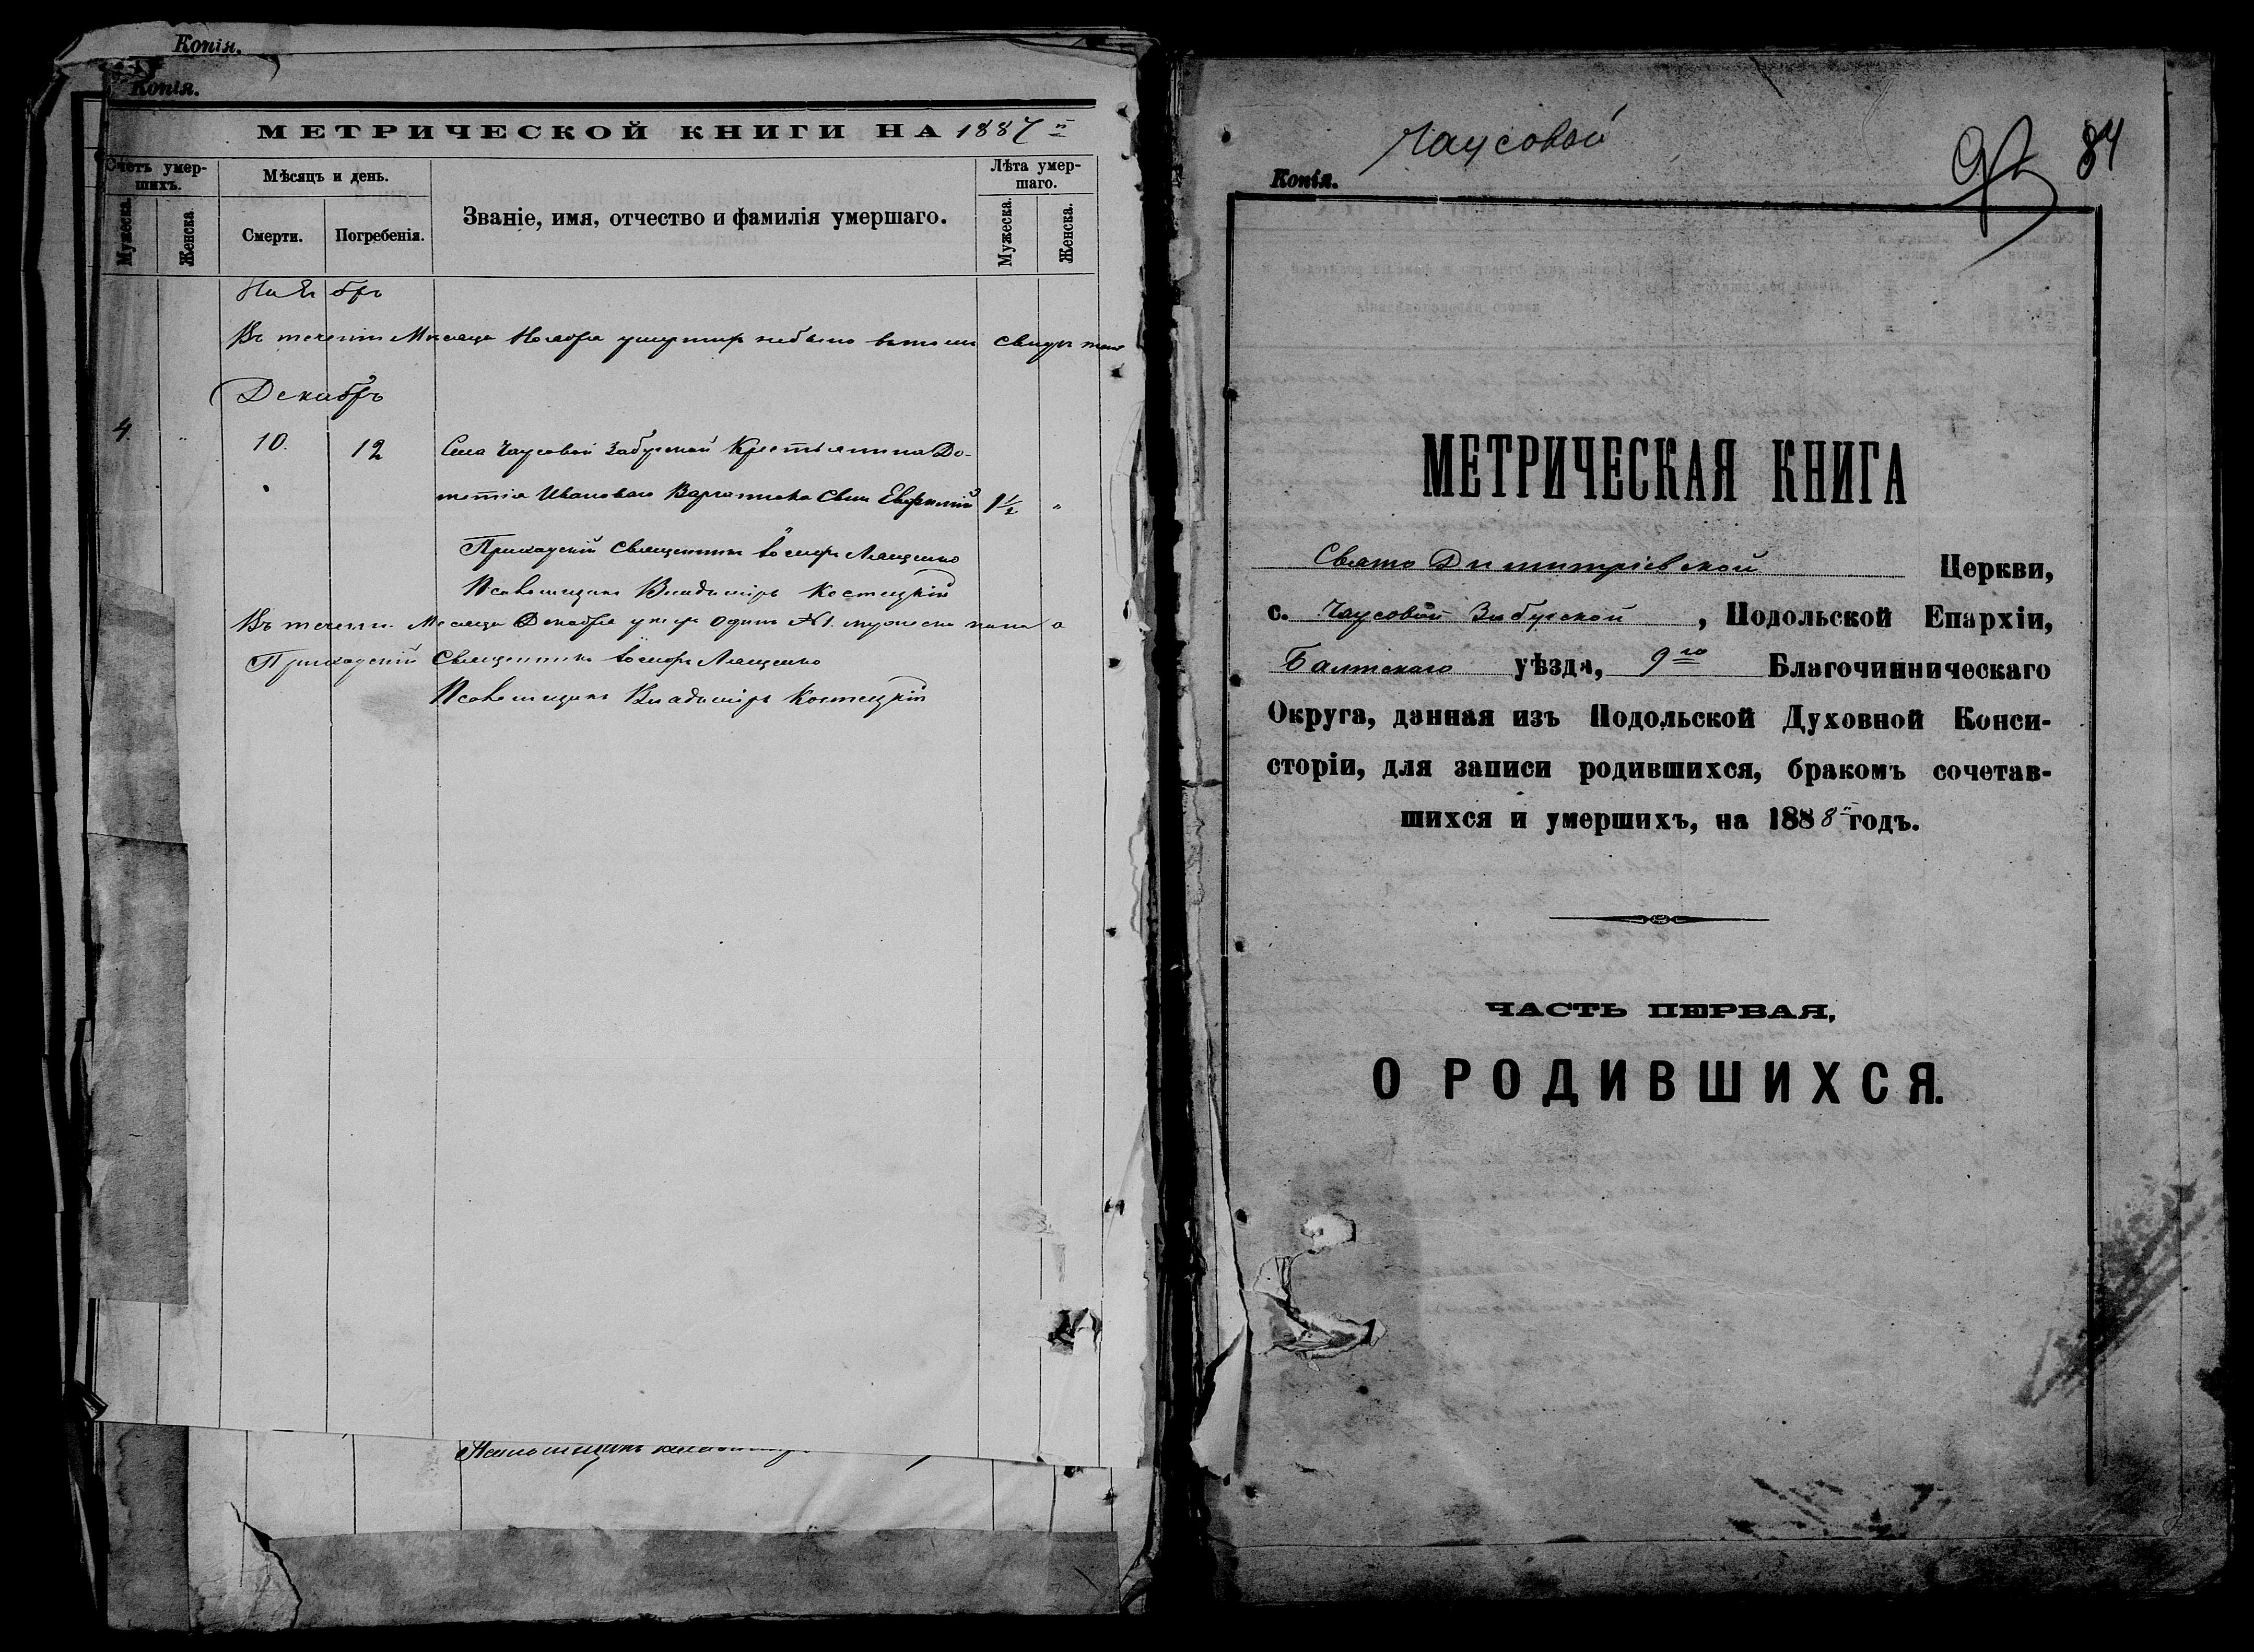 Копія.
Копія.
МЕТРИЧЕСКОЙ КНИГИ НА 1887 й
Счетъ умер-
шихъ.
Мѣсяцъ и день.
Званіе, имя, отчество и фамилія умершаго.
Лѣта умер-
шаго.
Мужеска.
Женска.
Смерти.
Погребенія.
Мужеска.
Женска.
Ноябрь
Въ теченіи Мѣсяца Ноября умершихъ небыло въ томъ свидѣт
Декабрь
4. „ 10. 12 Села Чаусовой Забугской Крестьянина До-
Иванова сынъ Евфимій 1½ „
Приходскій Священникъ Іосифъ
Псаломщикъ Владиміръ Костецкій
Въ теченіи Мѣсяца Декабря умеръ Одинъ №1. мужеска пола
Приходскій Священникъ Іосифъ
Псаломщикъ Владиміръ Костецкій
Псаломщикъ
Чаусовой
84
Копія.
МЕТРИЧЕСКАЯ КНИГА
Свято Димитріевской Церкви,
с. Чаусовой Забугской, Подольской Епархіи,
Балтскаго уѣзда, 9го Благочинническаго
Округа, данная изъ Подольской Духовной Конси-
сторіи, для записи родившихся, бракомъ сочетав-
шихся и умершихъ, на 1888й годъ.
ЧАСТЬ ПЕРВАЯ,
О РОДИВШИХСЯ.